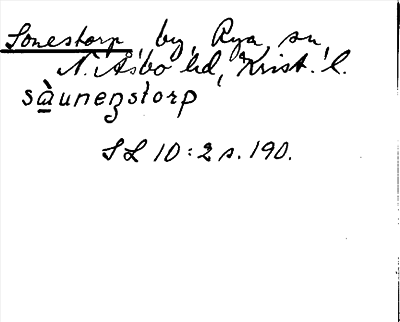 Sonestorp, by, Rya sn
N. Åsbo hd, Krist. l.
sàunenstorp
SL 10:2 s. 190.